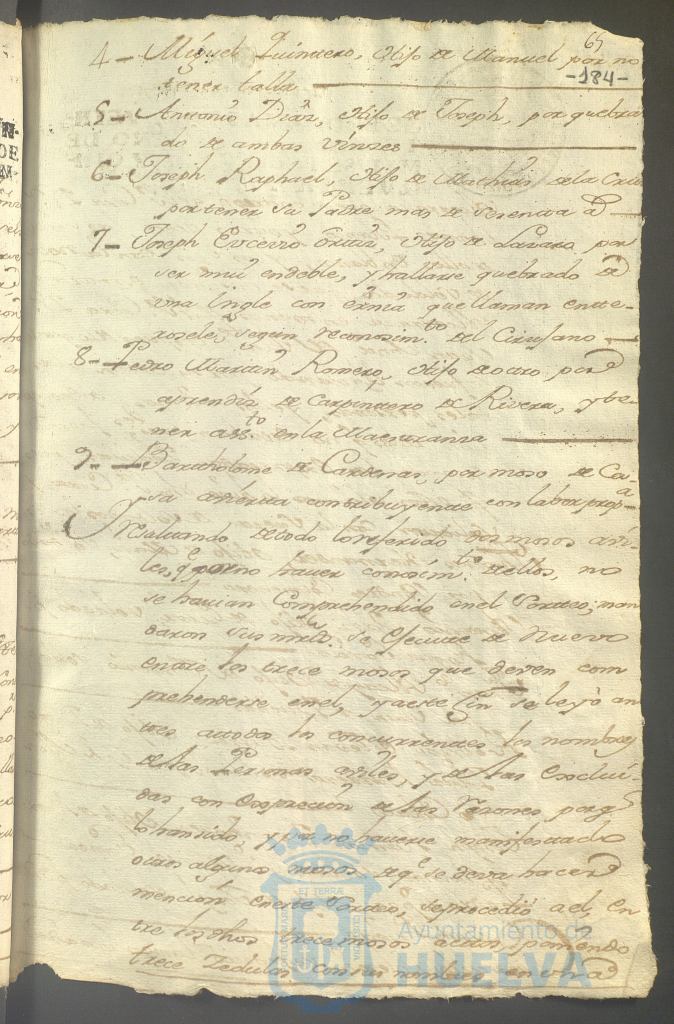 65
-184-
4- Miguel Quintero, Hijo de Manuel por no
tener talla
5- Antonio Diaz, Hijo de Joseph, por quebra
do de ambas
6- Joseph Raphael, Hijo de Mathias de la Cruz
por tener su Padre mas de sesenta a.s
7- Joseph Hijo de Lazaro por
ser mui endeble, y hallarse quebrado de
una Ingle con ernia que llaman ente-
rosele, segun reconosim.to del Cirujano
8- Pedro Martin Romero, Hijo de otro, por
aprendiz de Carpintero de Rivera, y te-
ner ass.to en la Maestransa
9- Bartholome de Cardenas, por moso de Ca-
sa abierta contribuyente con labor propia
Resultando de todo lo referido dos mosos avi-
les, q.e por no haver conosim.to de ellos, no
se havian Comprehendido en el Sorteo; man
daron sus mrds. se efecute de nuevo
entre los trece mosos que deven com
prehenderse en el, y a este fin se leyó an
tes a todos los concurrentes los nombres
de las Personas aviles, y de las exclui
das, con exprecion de las rasones porq.e
lo han sido, y por no haverse manifestado
otros algunos mosos de q.e se deva hacer
mencion en este Sorteo, se procedió a el, en
tre los dhos trece mosos actos, poniendo
trece Zedulas con sus nombres en una
ET TERRAE
Ayuntamiento de
HUELVA